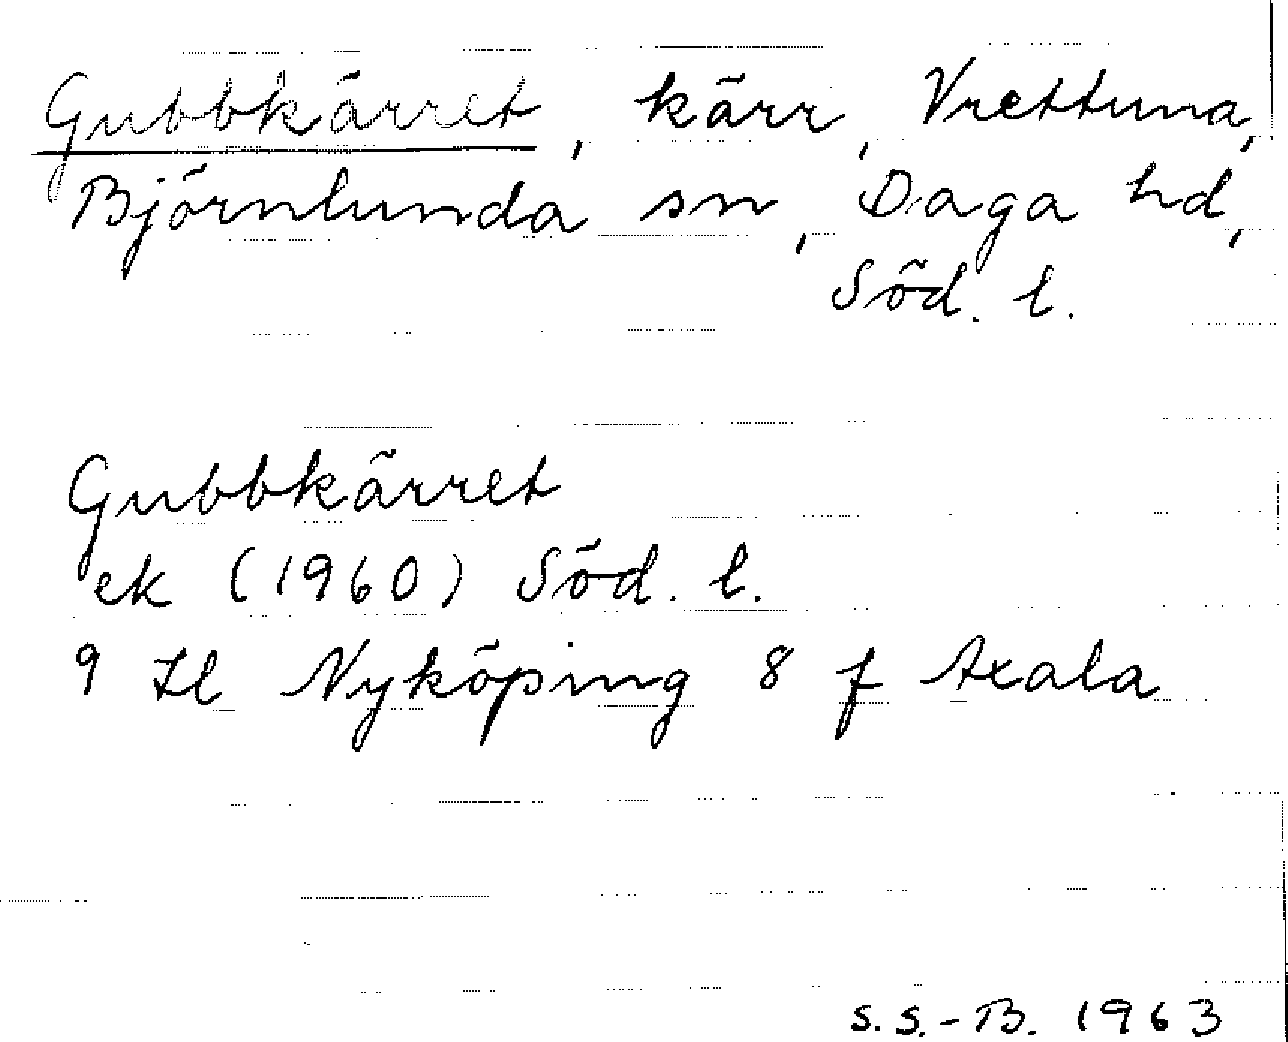 Gubbkärret, kärr, Vrettuna,
Björnlunda sn, Daga hd,
Söd. l.
Gubbkärret
ek (1960) Söd. l.
9 Il Nyköping 8 f Axala
S.S.-B. 1963